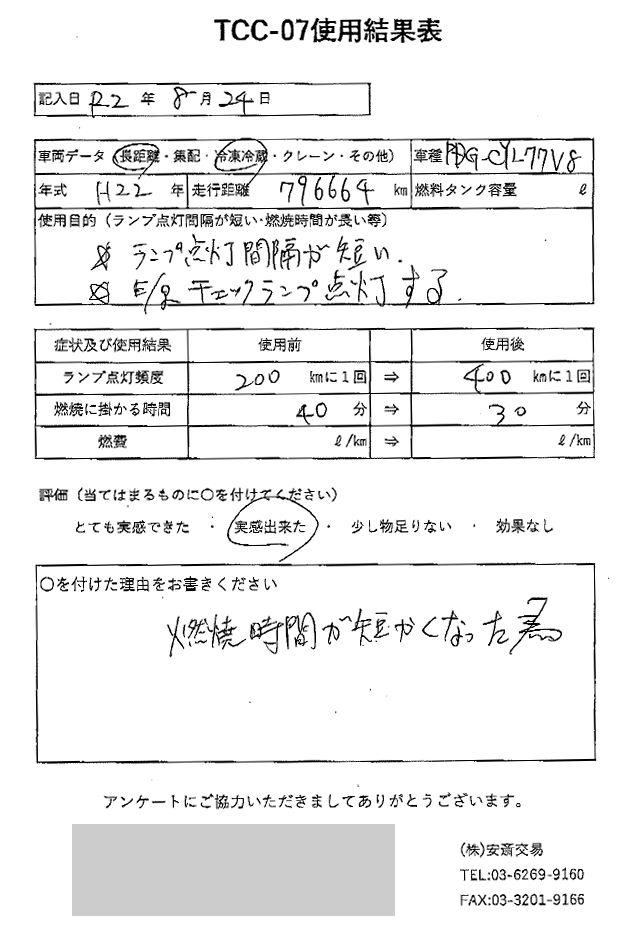 TCC-07使用結果表
記入日 R2 年 8 月 24 日
車両データ（長距離・集配・冷凍冷蔵・クレーン・その他） 車種 PDG-CYL77V8
年式 H22 年 走行距離 796664 km 燃料タンク容量 ℓ
使用目的（ランプ点灯間隔が短い・燃焼時間が長い等）
ランプ点灯間隔が短い.
E/gチェックランプ点灯する.
症状及び使用結果 使用前 使用後
ランプ点灯頻度 200 kmに1回 ⇒ 400 kmに1回
燃焼に掛かる時間 40 分 ⇒ 30 分
燃費 ℓ/km ⇒ ℓ/km
評価（当てはまるものに○を付けてください）
とても実感できた ・ 実感出来た ・ 少し物足りない ・ 効果なし
○を付けた理由をお書きください
燃焼時間が短かくなった為
アンケートにご協力いただきましてありがとうございます。
(株)安斎交易
TEL:03-6269-9160
FAX:03-3201-9166